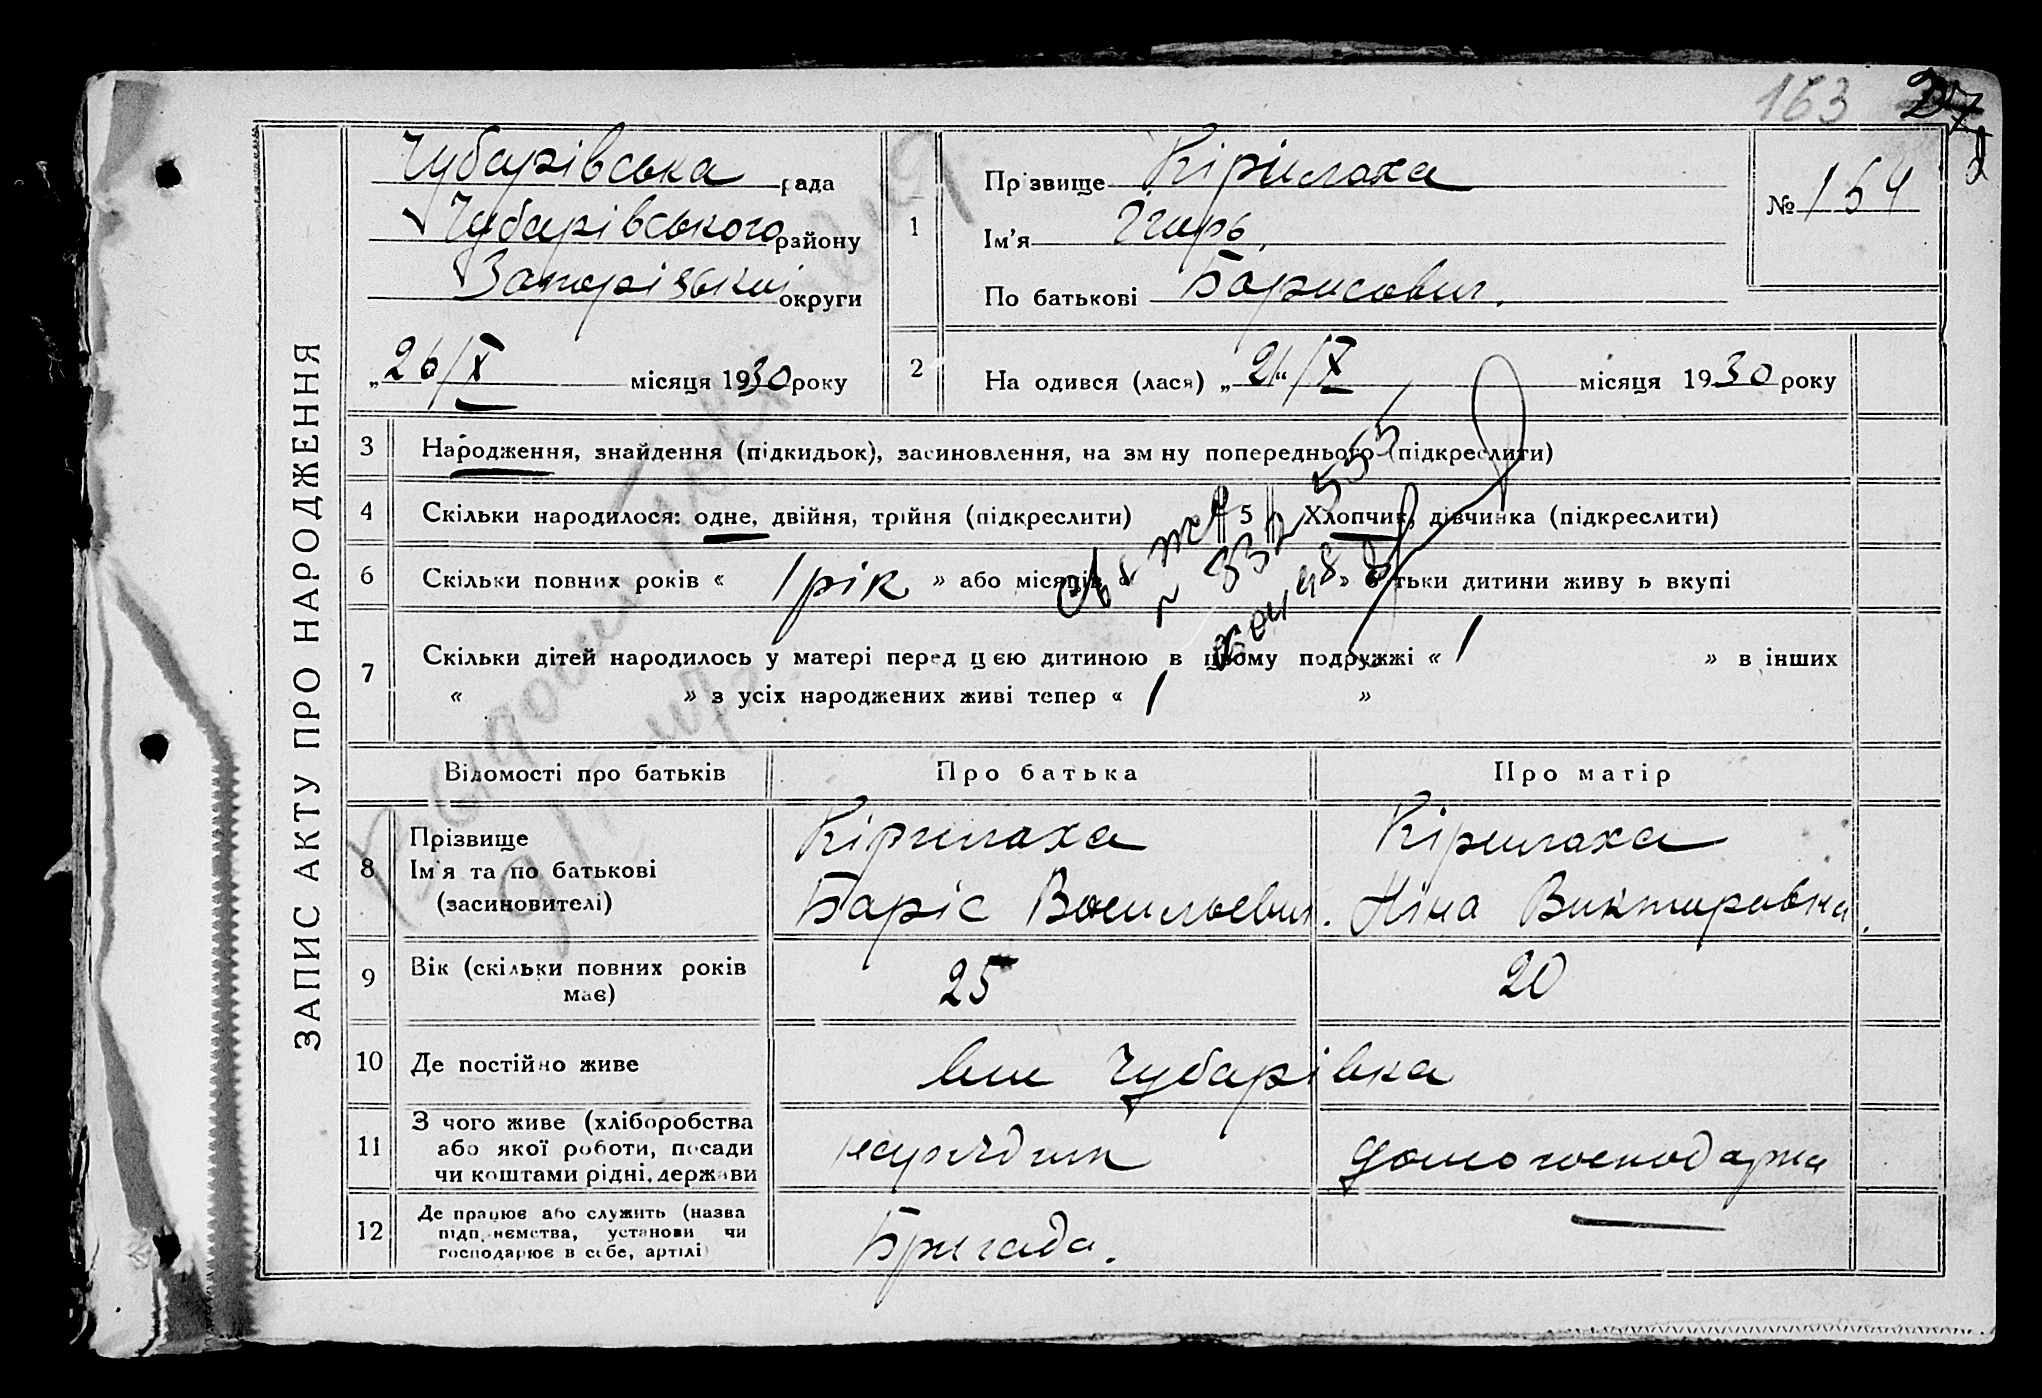 163 27
ЗАПИС АКТУ ПРО НАРОДЖЕННЯ
Чубарівська рада
Чубарівського району
Запорізької округи
„26/X місяця 1930 року
1
Прізвище Кірилаха
Ім'я Ігорь,
По батькові Борисович.
№ 164
2
На одився (лася) „21“/X місяця 1930 року
3 Народження, знайдення (підкидьок), засиновлення, на зм ну попереднього (підкреслити)
4 Скільки народилося: одне, двійня, трійня (підкреслити) 5 Хлопчик, дівчинка (підкреслити)
6 Скільки повних років « 1 рік » або місяців « » б тьки дитини живу ь вкупі
7 Скільки дітей народилось у матері перед цією дитиною в цьому подружжі « 1 » в інших
« » з усіх народжених живі тепер « 1 »
Відомості про батьків Про батька Про матір
8 Прізвище
Ім'я та по батькові
(засиновителі)
Кірилаха
Баріс Васильевич.
Кірилаха
Ніна Викторовна.
9 Вік (скільки повних років має) 25 20
10 Де постійно живе Чубарівка
11 З чого живе (хліборобства
або якої роботи, посади
чи коштами рідні, держави
домогосподарка
12 Де працює або служить (назва
підп.иємства, установи чи
господарює в себе, артілі)
Бригада. —